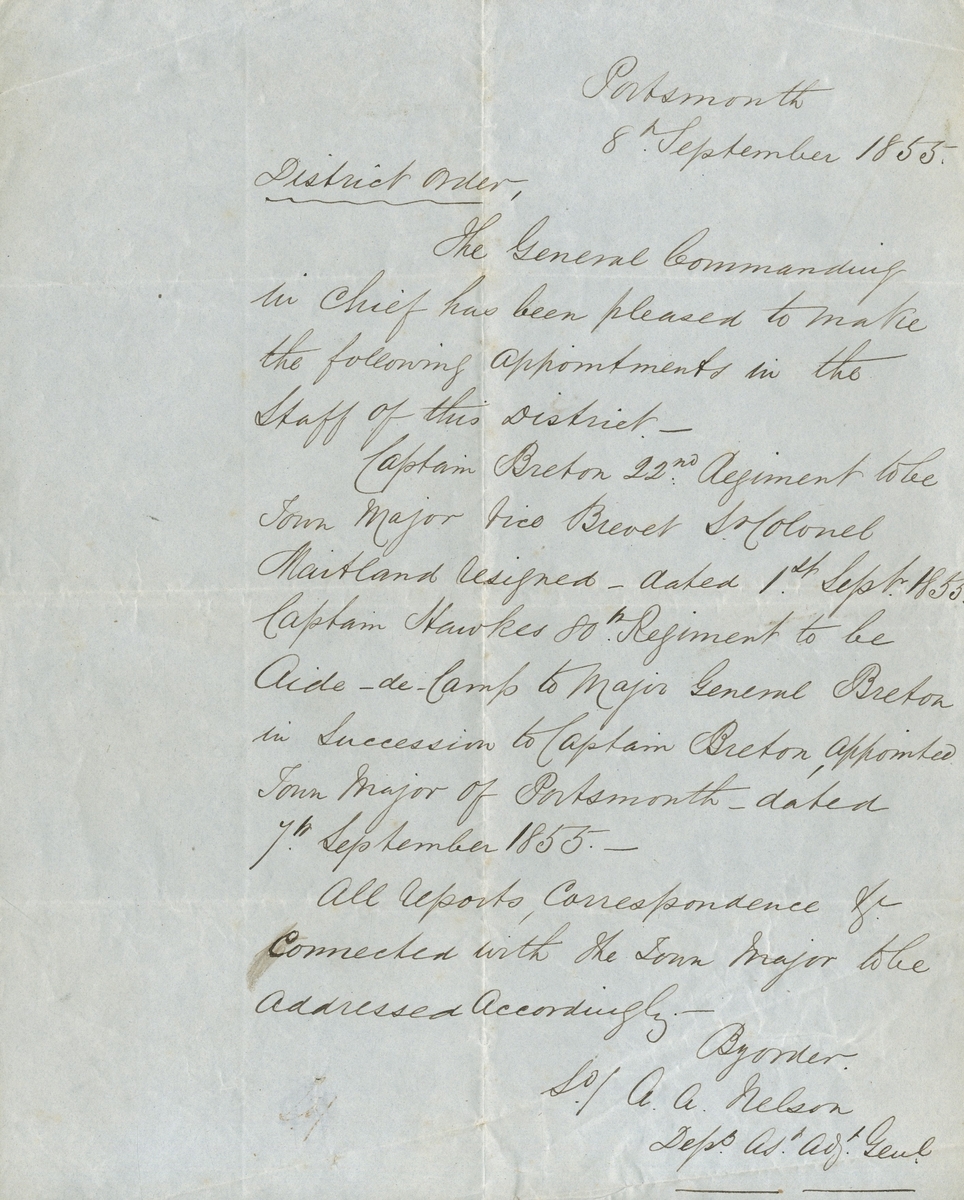 Portsmouth
8th September 1855.
District Order,
The General Commanding
in Chief has been pleased to make
the following appointments in the
Staff of this District. —
Captain Breton 22nd Regiment to be
Town Major vice Brevet Lt Colonel
Maitland resigned — dated 1st Septr. 1855.
Captain Hawkes 80th Regiment to be
Aide-de-Camp to Major General Breton
in succession to Captain Breton, appointed
Town Major of Portsmouth — dated
7th September 1855. —
All reports, Correspondence &c
Connected with the Town Major to be
addressed accordingly. —
By order.
Sd/ A. A. Nelson
Depy. Ast. Adjt. Genl.